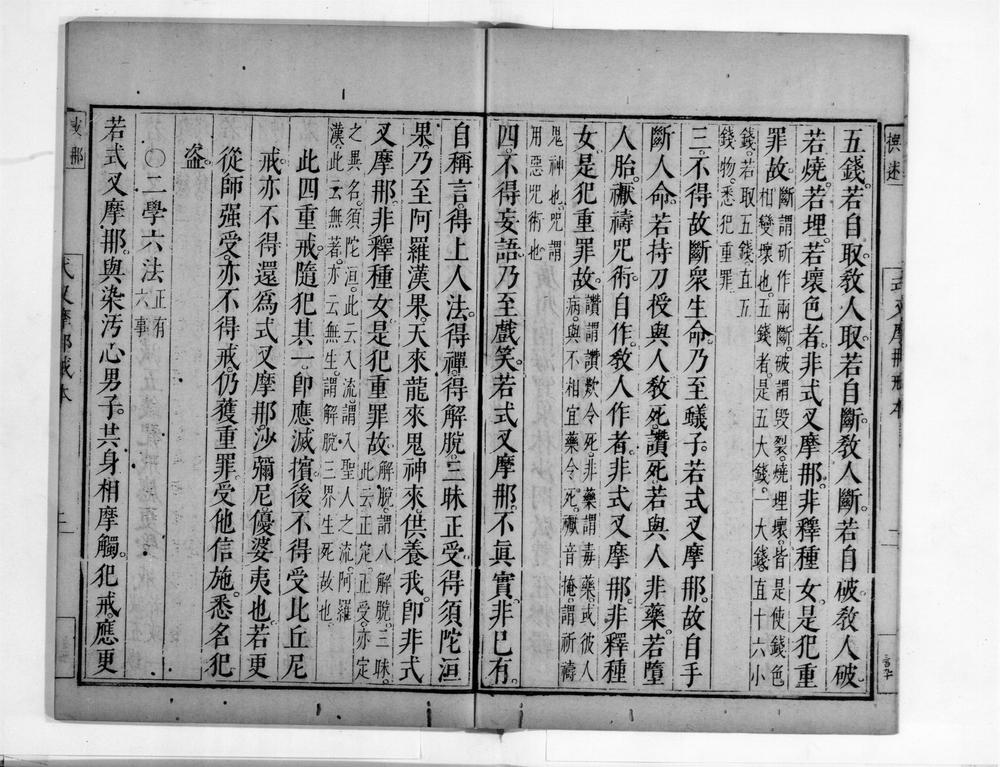 五錢。若自取。教人取。若自斷。教人斷。若自破。教人破。
若燒。若埋。若壞色者。非式叉摩那。非釋種女。是犯重
罪故。斷謂斫作兩斷。破謂毀裂。燒埋壞。皆是使錢色
相變壞也。五錢者。是五大錢。一大錢。直十六小
錢。若取五錢。直五
錢物。悉犯重罪
三。不得故斷眾生命。乃至蟻子。若式叉摩那。故自手
斷人命。若持刀授與人。教死。讚死。若與人非藥。若墮
人胎。厭禱咒術。自作。教人作者。非式叉摩那。非釋種
女。是犯重罪故。讚謂讚歎令死。非藥謂毒藥。或彼人
病。與不相宜藥令死。厭音掩。謂祈禱
鬼神也。咒謂
用惡咒術也
四。不得妄語。乃至戲笑。若式叉摩那。不真實。非已有。
自稱言。得上人法。得禪。得解脫。三昧正受。得須陀洹
果。乃至阿羅漢果。天來龍來鬼神來。供養我。即非式
叉摩那。非釋種女。是犯重罪故。解脫。謂八解脫。三昧。
此云正定。正受。亦定
之異名。須陀洹。此云入流。謂入聖人之流。阿羅
漢。此云無著。亦云無生。謂解脫三界生死故也。
此四重戒。隨犯其一。即應滅擯。後不得受比丘尼
戒。亦不得還為式叉摩那。沙彌尼。優婆夷也。若更
從師強受。亦不得戒。仍獲重罪。受他信施。悉名犯
盜。
〇二學六法正有
六事
若式叉摩那。與染汚心男子。共身相摩觸。犯戒應更
式叉摩那戒本
二